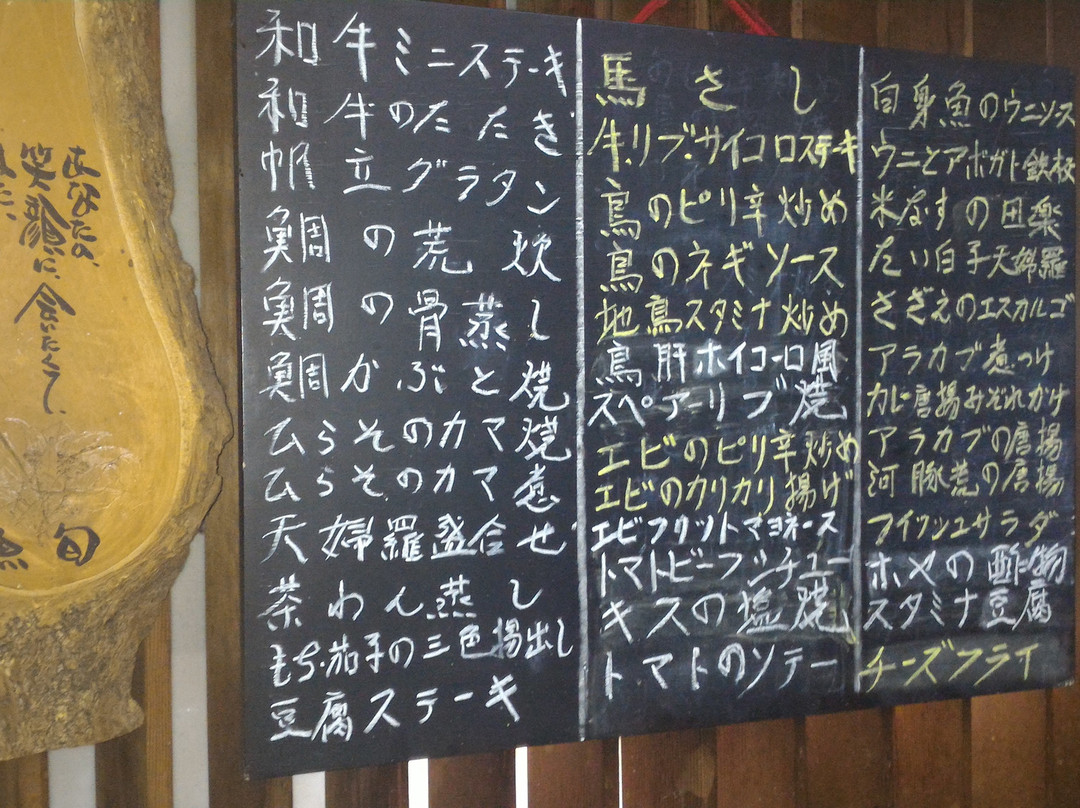 あなたの、
笑顔に、
会いたくて、
旬
和牛ミニステーキ
和牛のたたき
帆立グラタン
鯛の荒炊
鯛の骨蒸し
鯛かぶと焼
ひらそのカマ焼
ひらそのカマ煮
天婦羅盛合せ
茶わん蒸し
もち・茄子の三色揚出し
豆腐ステーキ
馬さし
牛リブ・サイコロステーキ
鳥のピリ辛炒め
鳥のネギソース
地鳥スタミナ炒め
鳥肝ホイコーロ風
スペアーリブ焼
エビのピリ辛炒め
エビのカリカリ揚げ
エビフリットマヨネース
トマトビーフシチュー
キスの塩焼
トマトのソテー
白身魚のウニソース
ウニとアボガト鉄板
米なすの田楽
たい白子天婦羅
さざえのエスカルゴ
アラカブ煮つけ
カレー唐揚みぞれかけ
アラカブの唐揚
河豚荒の唐揚
フイッシュサラダ
ホヤの酢物
スタミナ豆腐
チーズフライ